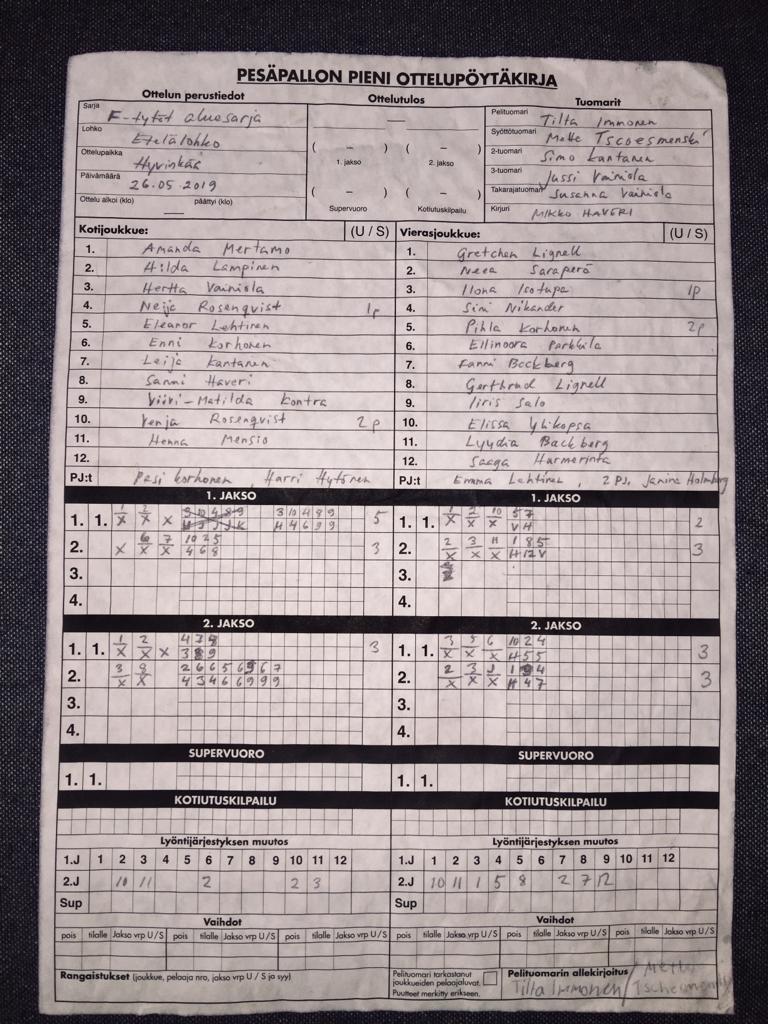 PESÄPALLON PIENI OTTELUPÖYTÄKIRJA
Ottelun perustiedot Ottelutulos Tuomarit
Sarja F-tytöt aluesarja
Lohko Etelälohko
Ottelupaikka Hyvinkää
Päivämäärä 26.05.2019
Ottelu alkoi (klo) — päättyi (klo)
—
( – ) ( – )
1. jakso 2. jakso
( – ) ( – )
Supervuoro Kotiutuskilpailu
Pelituomari Tilta Immonen
Syöttötuomari Mette
2-tuomari Simo Kantanen
3-tuomari Jussi Vainiola
Takarajatuomari Susanna Vainiola
Kirjuri MIKKO HAVERI
Kotijoukkue: (U / S) Vierasjoukkue: (U / S)
1. Amanda Mertamo 1. Gretchen Lignell
2. Hilda Lampinen 2. Neea Saraperö
3. Hertta Vainiola 3. Ilona Isotupa 1p
4. Neija Rosenqvist 1p 4. Sini Nikander
5. Eleanor Lehtinen 5. Pihla Korhonen 2p
6. Enni Korhonen 6. Ellinoora Parkkila
7. Leija Kantanen 7. Fanni Backberg
8. Sanni Haveri 8. Gerthrud Lignell
9. Viivi-Matilda Kontra 9. Iiris Salo
10. Venja Rosenqvist 2p 10. Elissa Ylikopsa
11. Henna Mensio 11. Lyydia Backberg
12. 12. Saaga Hurmerinta
PJ:t Pasi Korhonen, Harri Hytönen PJ:t Emma Lehtinen, 2 PJ, Janina Holmberg
1. JAKSO 1. JAKSO
1. 1. 1 2 3 10 4 8 9 5 1. 1. 1 2 10 5 7 2
X X X H 4 6 9 9 X X X V H
2. 6 7 10 2 5 3 2. 2 3 11 1 8 5 3
X X X 4 6 8 X X X H 12 V
3. 3.
4. 4.
2. JAKSO 2. JAKSO
1. 1. 1 2 4 7 8 3 1. 1. 3 5 6 10 2 4 3
X X X 3 8 9 X X X H 5 5
2. 3 8 2 6 6 5 6 9 6 7 2. 2 3 1 4 3
X X 4 3 4 6 6 9 9 9 X X X H 4 7
3. 3.
4. 4.
SUPERVUORO SUPERVUORO
1. 1. 1. 1.
KOTIUTUSKILPAILU KOTIUTUSKILPAILU
Lyöntijärjestyksen muutos Lyöntijärjestyksen muutos
1.J 1 2 3 4 5 6 7 8 9 10 11 12 1.J 1 2 3 4 5 6 7 8 9 10 11 12
2.J 10 11 2 2 3 2.J 10 11 1 5 8 2 7 12
Sup Sup
Vaihdot Vaihdot
pois tilalle Jakso vrp U / S pois tilalle Jakso vrp U / S pois tilalle Jakso vrp U / S pois tilalle Jakso vrp U / S pois tilalle Jakso vrp U / S pois tilalle Jakso vrp U / S
Rangaistukset (joukkue, pelaaja nro, jakso vrp U / S ja syy)
Pelituomari tarkastanut
joukkueiden pelaajaluvat.
Puutteet merkitty erikseen.
Pelituomarin allekirjoitus
Tilta Immonen / Mette